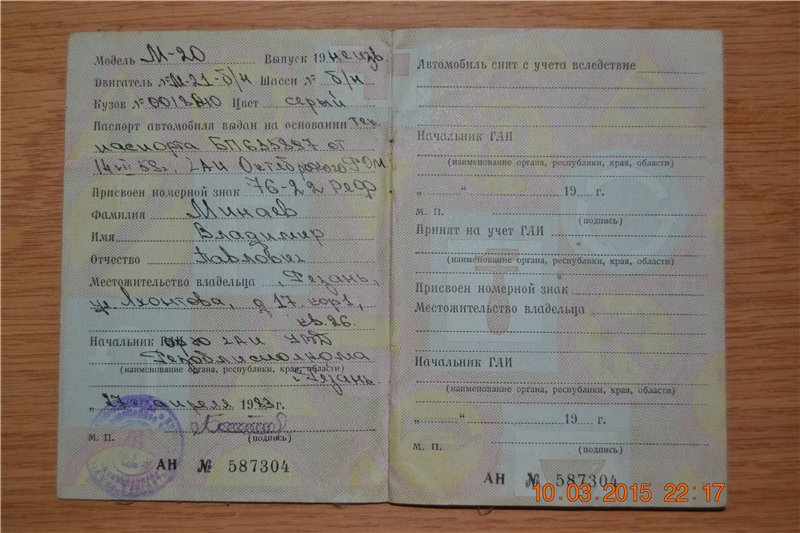 Модель М-20 Выпуск 19 неизв.
Двигатель № М-21-б/н Шасси № б/н
Кузов № Цвет серый
Паспорт автомобиля выдан на основании тех.
паспорта БП 635387 от
ГАИ Октябрьского РОМ
Присвоен номерной знак 76-22 РЕФ
Фамилия Минаев
Имя Владимир
Отчество Павлович
Местожительство владельца г. Рязань,
ул. д. 17 кор 1,
кв. 26.
Начальник ГАИ УВД
Рязоблисполкома
(наименование органа, республики, края, области)
г. Рязань
„27“ апреля 1983 г.
М. П. (подпись)
АН № 587304
Автомобиль снят с учета вследствие
Начальник ГАИ
(наименование органа, республики, края, области)
„ “ 19 г.
М. П. (подпись)
Принят на учет ГАИ
(наименование органа, республики, края, области)
Присвоен номерной знак
Местожительство владельца
Начальник ГАИ
(наименование органа, республики, края, области)
„ “ 19 г.
М. П. (подпись)
АН № 587304
10.03.2015 22:17